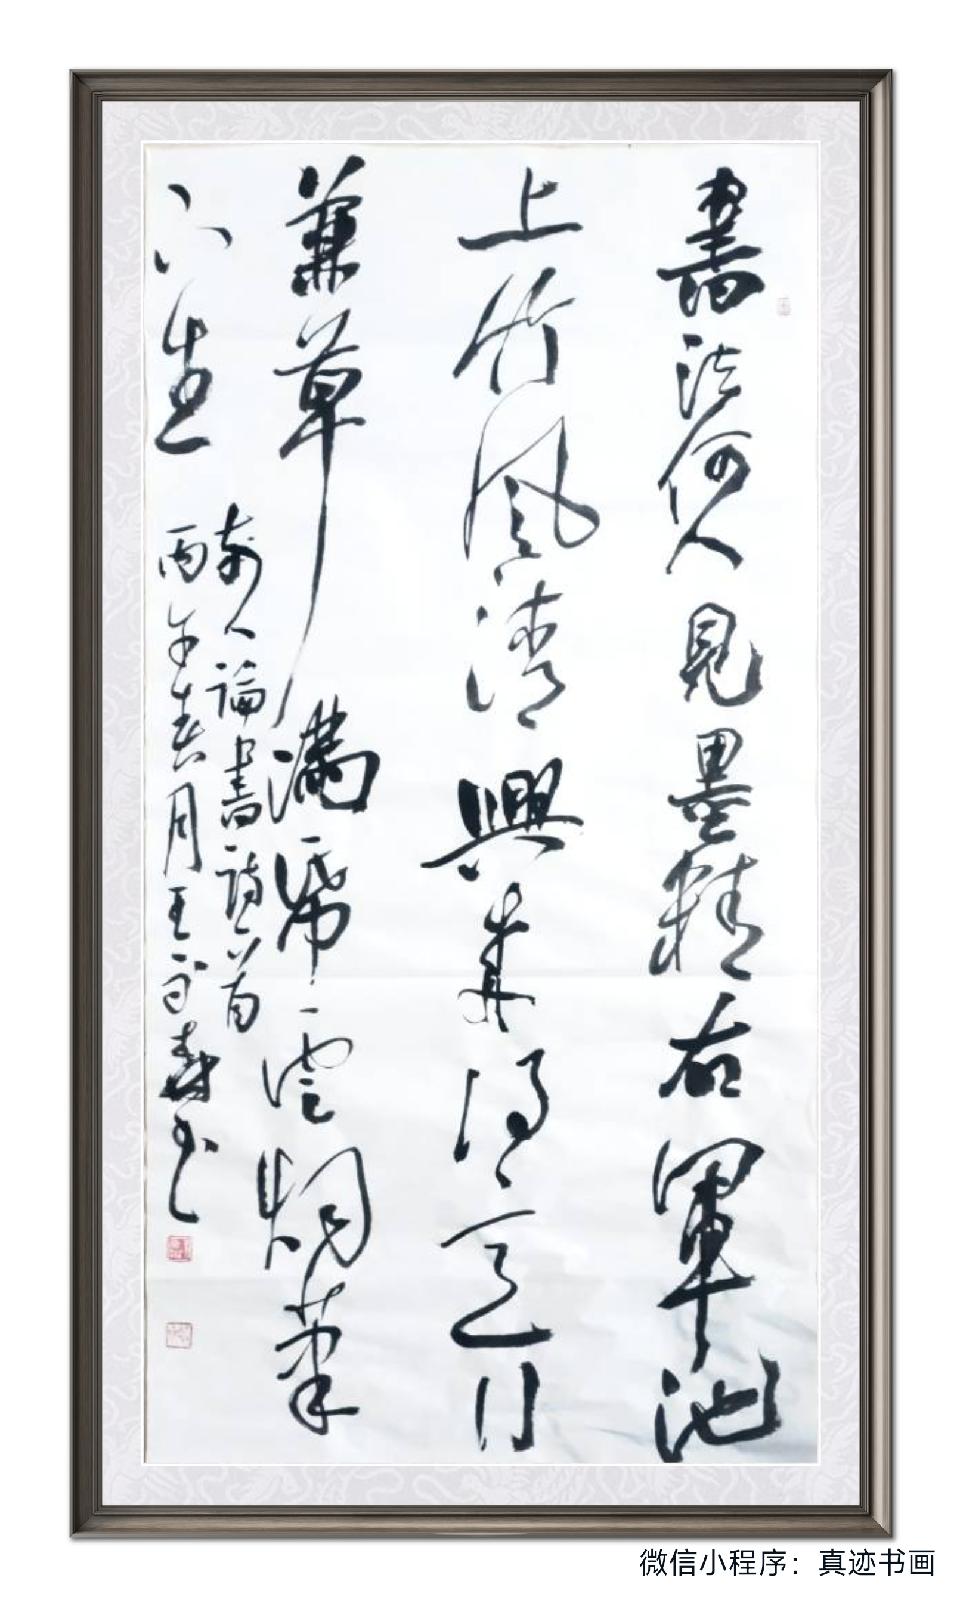 書法何人見墨精右軍池
上竹風清興來得意行
兼草滿帋雲烟筆
下生
前人論書詩一首
丙午春月王壽书
微信小程序：真迹书画